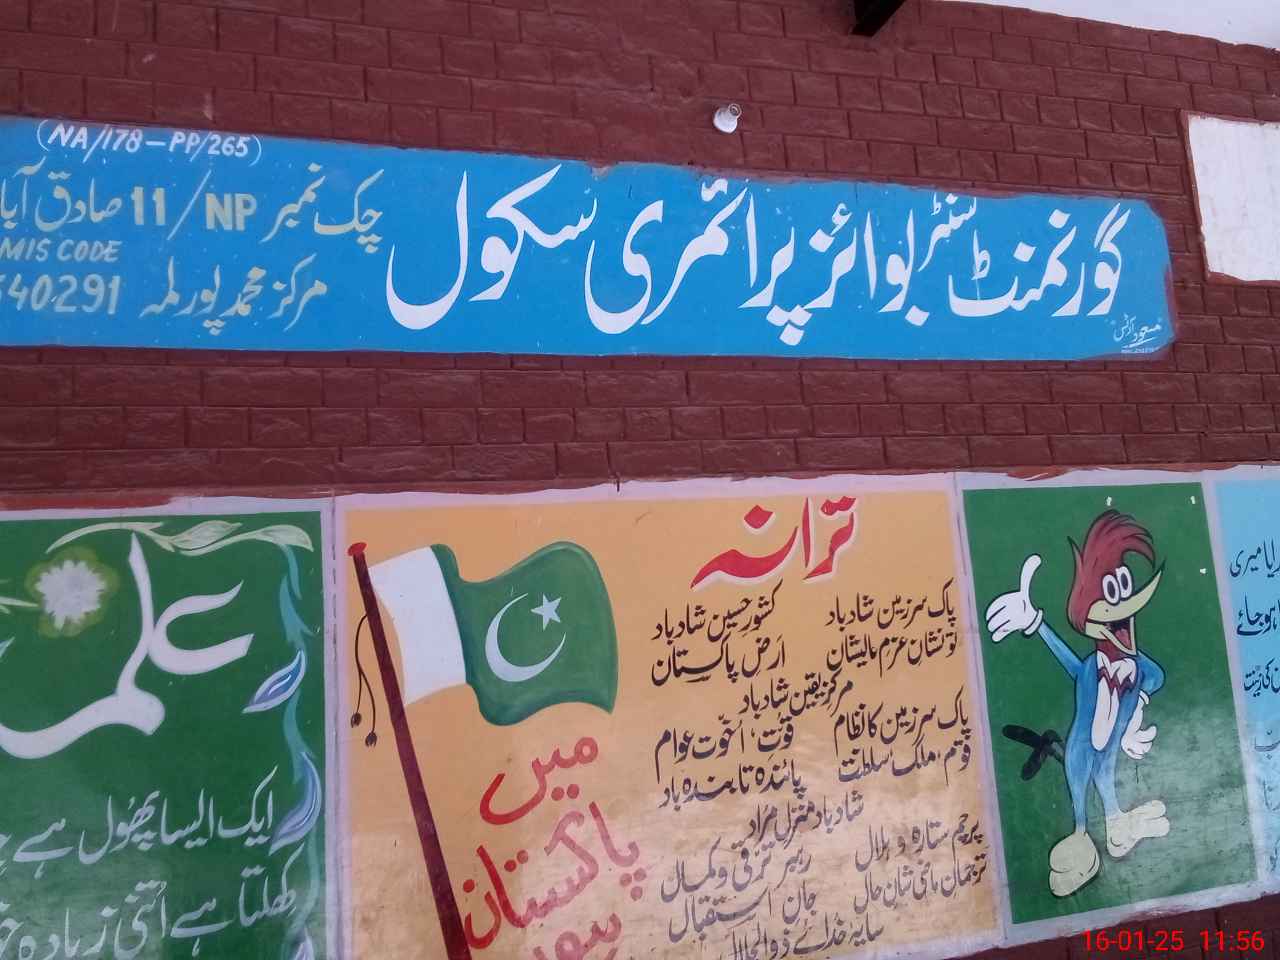 (NA/178-PP/265)
گورنمنٹ سنٹر بوائز پرائمری سکول
چک نمبر 11/NP صادق آبا
مرکز محمد پور لمہ
MIS CODE
40291
مسعود آرٹس
علم
ایک ایسا پھول ہے
کھلتا ہے اُتنی زیادہ
میں
پاکستان
ہوں
ترانہ
پاک سرزمین شاد باد کشور حسین شاد باد
تو نشان عزم عالیشان ارض پاکستان
مرکز یقین شاد باد
پاک سرزمین کا نظام قوت، اخوت عوام
قوم، ملک، سلطنت پائندہ تابندہ باد
شاد باد منزل مراد
پرچم ستارہ و ہلال رہبر ترقی و کمال
ترجمان ماضی شان حال جان استقبال
سایۂ خدائے ذوالجلال
میری
ہو جائے
کی زینت
16-01-25 11:56